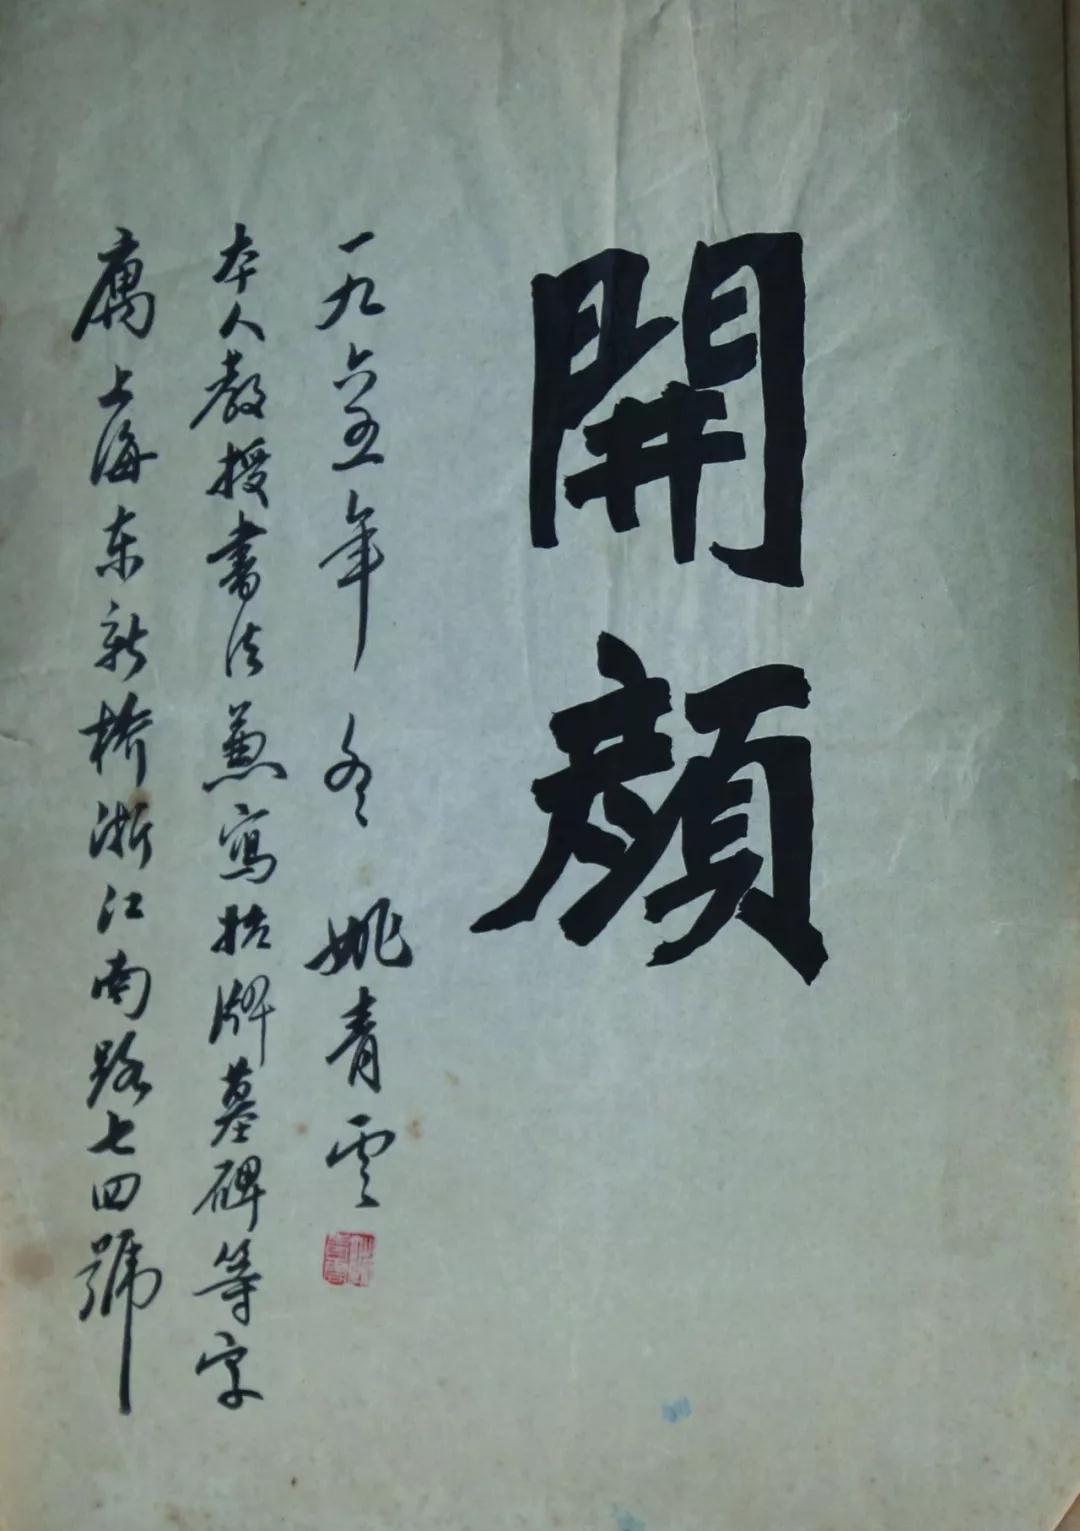 開顏
一九六五年冬姚青雲
本人教授書法兼寫招牌墓碑等字
寓上海东新橋浙江南路七四號